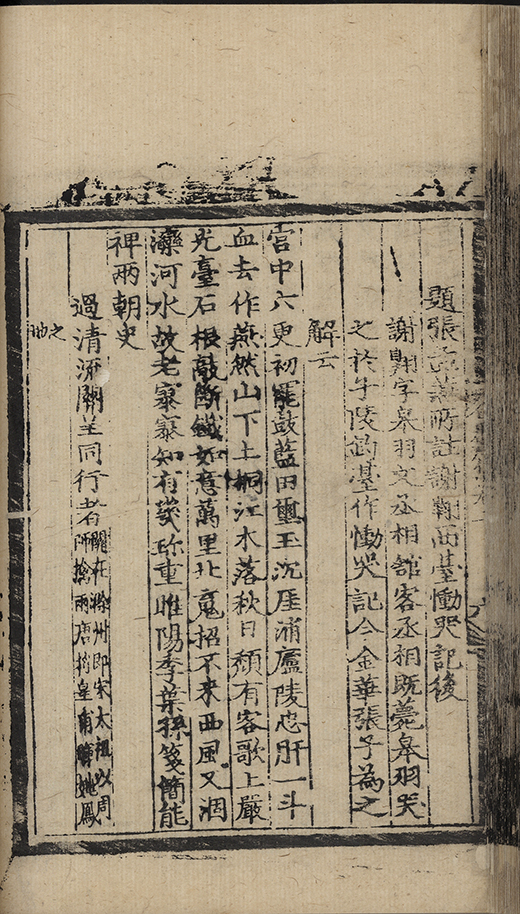 題張孟兼所註謝翱西臺慟哭記後
謝翱字皋羽文丞相舘客丞相既薨皋羽哭
之於子陵釣臺作慟哭記今金華張子為之
解云
宫中六更初罷鼓藍田璽玉沉厓浦廬陵忠肝一斗
血去作燕然山下土桐江木落秋日頹有客歌上嚴
光臺石根敲斷鐵如意萬里北䰟招不来西風又涸
灤河水故老寥寥知有幾珎重睢陽季葉孫箋簡能
裨兩朝史
過清流關呈同行者關在滁州即宋太祖以周
師擒南唐將皇甫暉姚鳳
之地